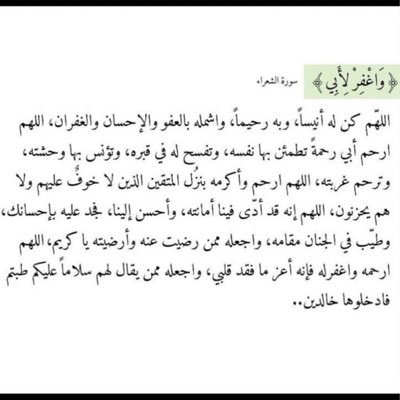 ﴿ وَاغْفِرْ لِأَبِي ﴾ سورة الشعراء
اللهّم كن له أنيساً، وبه رحيماً، واشمله بالعفو والإحسان والغفران، اللهم
ارحم أبي رحمةً تطمئن بها نفسه، وتفسح له في قبره، وتؤنس بها وحشته،
وترحم غربته، اللهم ارحم وأكرمه بنزُل المتقين الذين لا خوفٌ عليهم ولا
هم يحزنون، اللهم إنه قد أدّى فينا أمانته، وأحسن إلينا، فجد عليه بإحسانك,
وطيّب في الجنان مقامه، واجعله ممن رضيت عنه وأرضيته يا كريم، اللهم
ارحمه واغفرله فإنه أعز ما فقد قلبي، واجعله ممن يقال لهم سلاماً عليكم طبتم
فادخلوها خالدين..